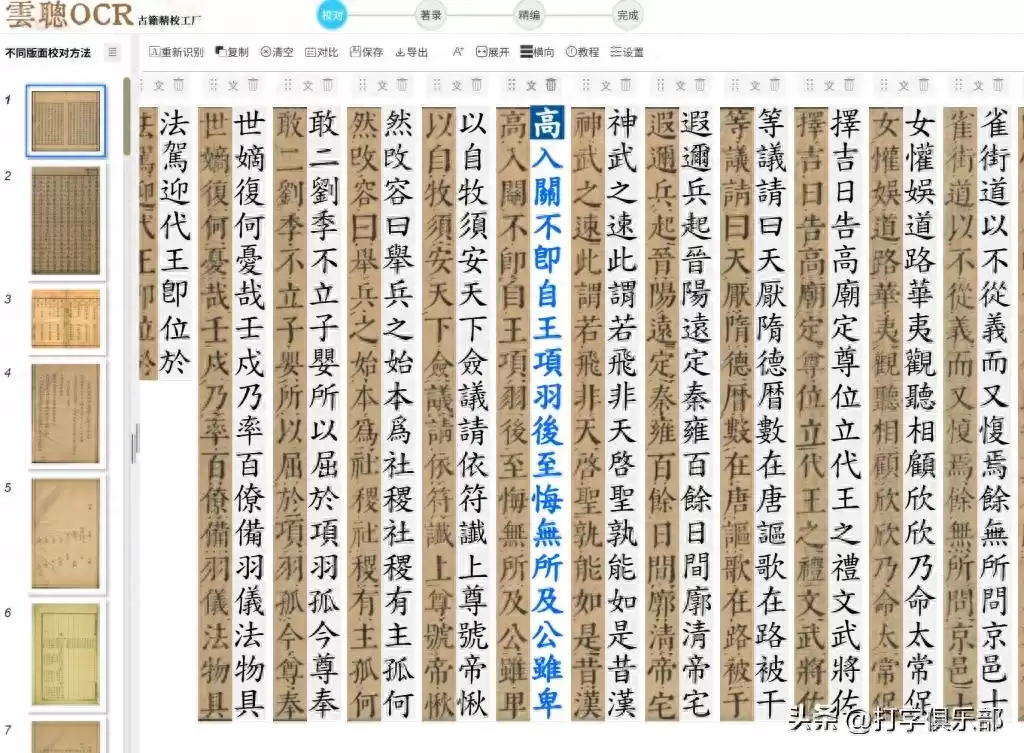 雲聰OCR 古籍精校工厂
校对
著录
精编
完成
不同版面校对方法
重新识别 复制 清空 对比 保存 导出 展开 横向 教程 设置
1
2
3
4
5
6
7
雀街道以不從義而又愎焉餘無所問京邑士
女懽娛道路華夷觀聽相顧欣欣乃命太常保
擇吉日告高廟定尊位立代王之禮文武將佐
等議請曰天厭隋德曆數在唐謳歌在路被干
遐邇兵起晉陽遠定秦雍百餘日間廓清帝宅
神武之速此謂若飛非天啓聖孰能如是昔漢
高入關不卽自王項羽後至悔無所及公雖卑
以自牧須安天下僉議請依符讖上尊號帝愀
然改容曰舉兵之始本爲社稷社稷有主孤何
敢二劉季不立子嬰所以屈於項羽孤今尊奉
世嫡復何憂哉壬戌乃率百僚備羽儀法物具
法駕迎代王卽位於
头条 @打字俱乐部